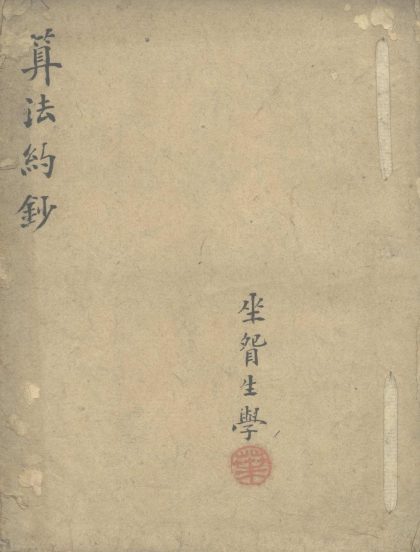 算法約鈔
坐生學